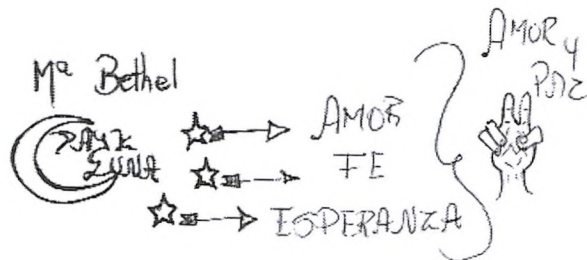 Mª Bethel
LUNA
AMOR
FE
ESPERANZA
AMOR y
PAZ